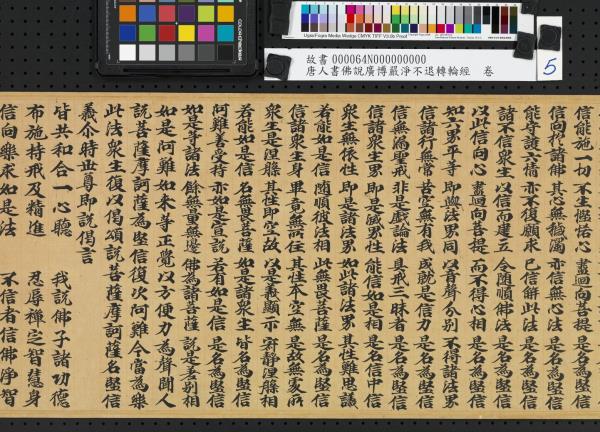 Ugra/Fogra Media Wedge CMYK TIFF V3.0b Proof
故書 000064N000000000
唐人書佛說廣博嚴淨不退轉輪經 卷
5
信能施一切 不生慳悋心 盡迴向菩提 是名為堅信
信向於諸佛 其心無穢濁 亦信無心法 是名為堅信
能守護六情 亦不復願求 已信解此法 是名為堅信
諸不信眾生 以信而建立 令隨順佛法 是名為堅信
以此信向心 盡迴向菩提 而不得心相 是名為堅信
知六界平等 即與法界同 以音聲分別 不得諸法界
信諸行無常 苦空無有我 成就是信力 是名為堅信
信無漏聖戒 非是戲論法 具戒三昧者 是名為堅信
信諸眾生界 即是滅界性 能信如是相 是名信中信
眾生無依性 即是諸法界 如此諸法界 其性難思議
若能如是信 隨順彼法相 此無畏菩薩 是名為堅信
信諸眾生身 畢竟無所住 其性本空無 是故無處所
眾生是涅槃 其性即空故 以是義顯示 寂靜涅槃相
若能如是信 名無畏菩薩 如是諸眾生 皆名為堅信
阿難善受持 亦如是宣說 若有如是信 是名為堅信
如是等諸法 餘無量無邊 佛為諸菩薩 說是差別相
如是阿難如來等正覺以方便力為聲聞人
說菩薩摩訶薩為堅信復次阿難今當為樂
此法眾生復以偈頌說菩薩摩訶薩名堅信
義尒時世尊即說偈言
皆共和合一心聽 我說佛子諸功德
布施持戒及精進 忍辱禪定智慧身
信向樂求如是法 不信者信佛淨智